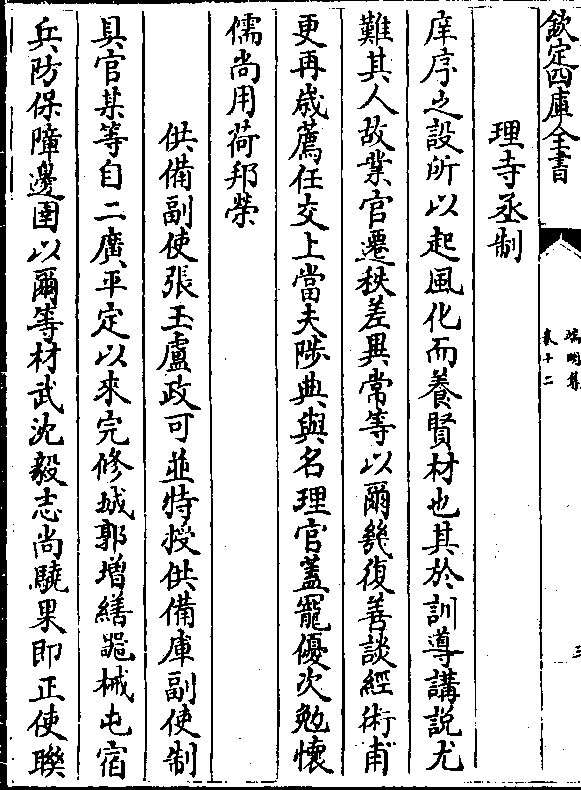 欽定四庫全書
端明集
卷十二
三
理寺丞制
庠序之設所以起風化而養賢材也其於訓導講説尤
難其人故業官遷秩差異常等以爾毓復善談經術甫
更再歲薦任交上當夫陟典與名理官蓋寵優次勉懷
儒尚用荷邦榮
供備副使張玉盧政可並特授供備庫副使制
具官某等自二廣平定以來完修城郭增繕器械屯宿
兵防保障邊圉以爾等材武沈毅志尚驍果即正使聯